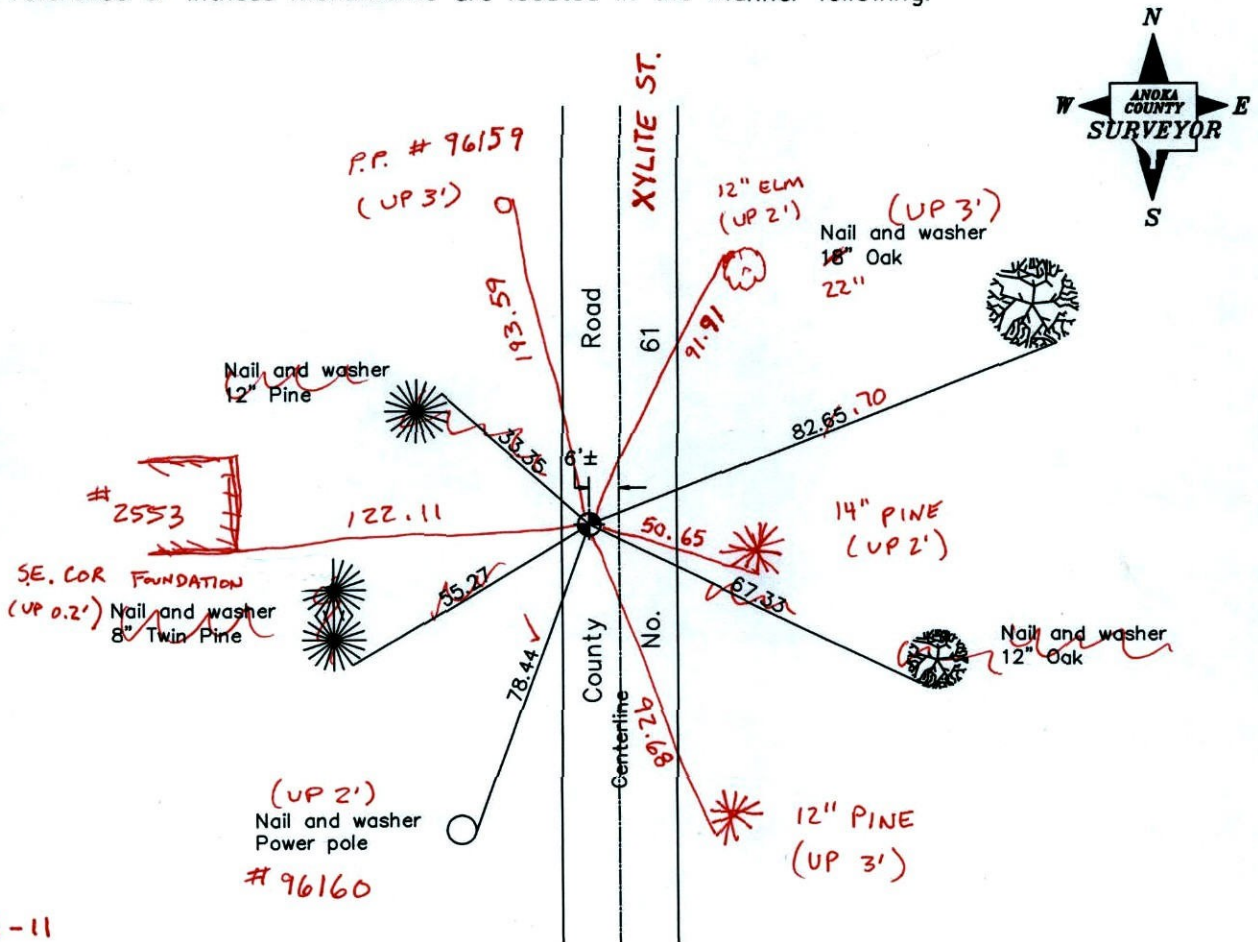 are located in the manner following:
N
W
ANOKA
COUNTY
SURVEYOR
E
S
XYLITE ST.
P.P. # 96159
(UP 3')
12" ELM
(UP 2')
(UP 3')
Nail and washer
18" Oak
22"
193.59
91.91
Road
61
Nail and washer
12" Pine
33.35
6'±
82.65
.70
# 2553
122.11
50.65
14" PINE
(UP 2')
S.E. COR FOUNDATION
(UP 0.2')
Nail and washer
8" Twin Pine
55.27
67.33
Nail and washer
12" Oak
78.44
County
No.
Centerline
(UP 2')
Nail and washer
Power pole
# 96160
12" PINE
(UP 3')
-11